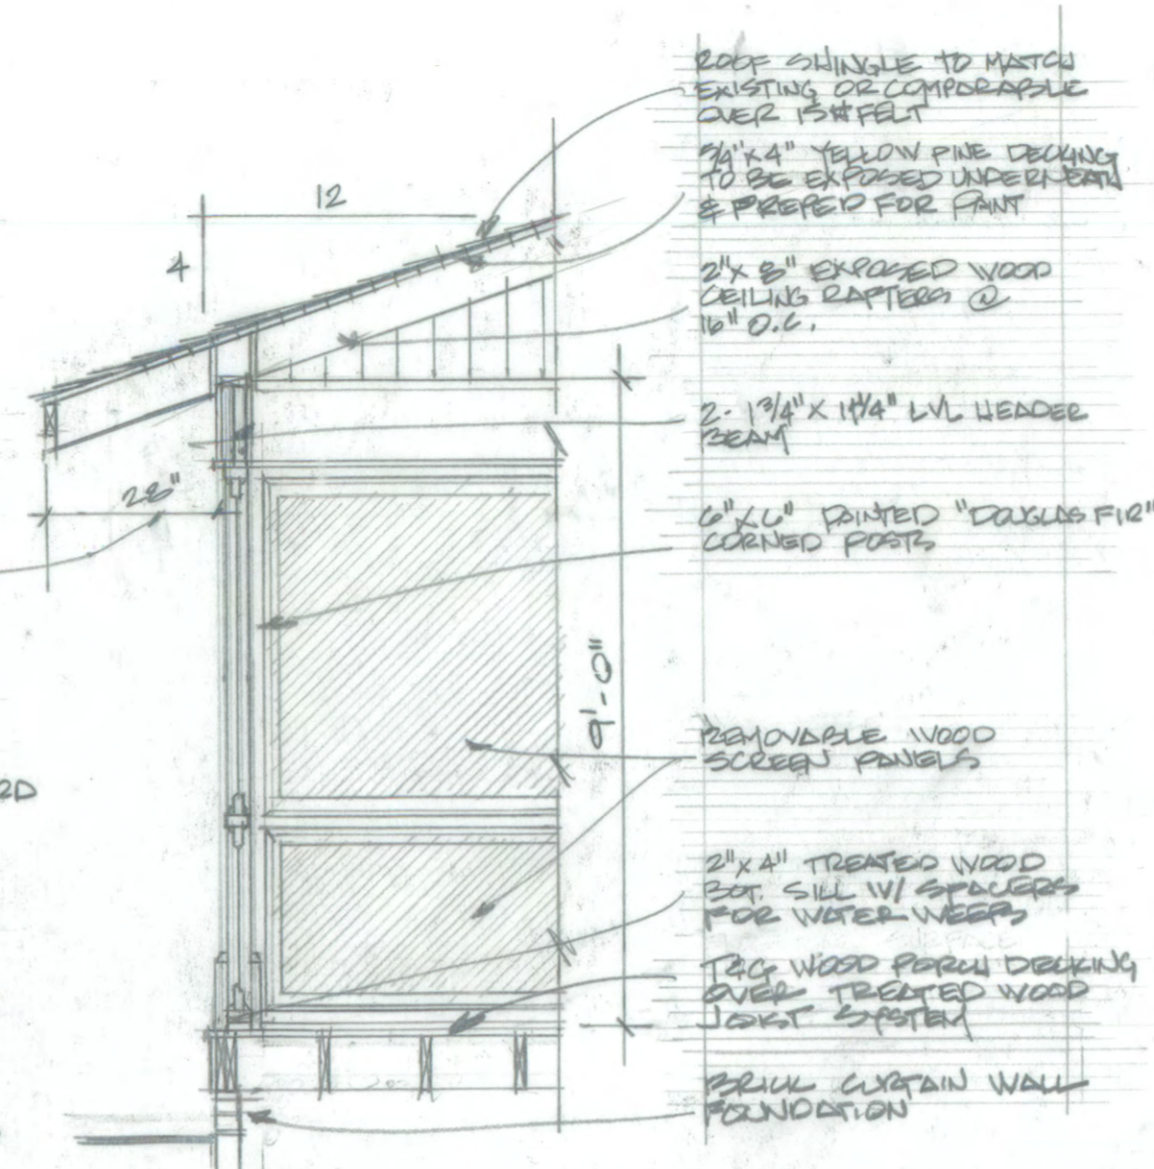 ROOF SHINGLE TO MATCH
EXISTING OR COMPARABLE
OVER 15# FELT
5/4"X4" YELLOW PINE DECKING
TO BE EXPOSED UNDERNEATH
& PREPED FOR PAINT
12
4
2"X 8" EXPOSED WOOD
CEILING RAFTERS @
16" O.C.
2- 1 3/4" X 11 1/4" LVL HEADER
BEAM
28"
6"X6" PAINTED "DOUGLAS FIR"
CORNED POSTS
9'-0"
REMOVABLE WOOD
SCREEN PANELS
RD
2"X4" TREATED WOOD
BOT. SILL W/ SPACERS
FOR WATER WEEPS
T&G WOOD PORCH DECKING
OVER TREATED WOOD
JOIST SYSTEM
BRICK CURTAIN WALL
FOUNDATION